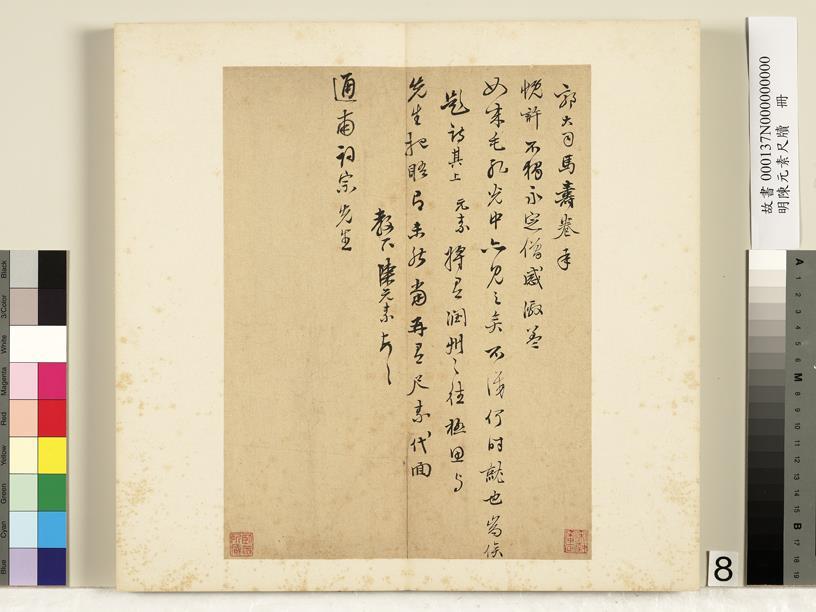 郭大司馬壽卷承
悅許不獨永定僧感激并
如來毛孔光中亦見之矣不識何時就也當俟
題諸其上元素將有潤州之往極思与
先生把晤而未能當再有尺素代面
教下陳元素頓首
通甫詞宗先生
故書 000137N000000000
明陳元素尺牘 冊
8
Black
3/Color
White
Magenta
Red
Yellow
Green
Cyan
Blue
A
1
2
3
4
5
6
M
8
9
10
11
12
13
14
15
B
17
18
19